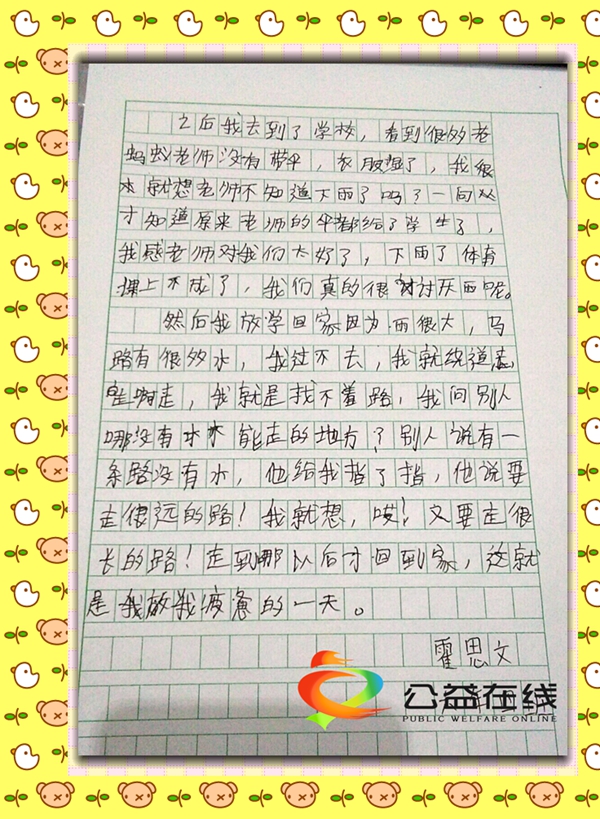 之后我去到了学校，看到很多老
蚂蚁老师没有带伞，衣服湿了，我很
就想老师不知道下雨了吗？一问从
才知道原来老师的伞都给了学生了，
我感老师对我们太好了，下雨了体育
课上不成了，我们真的很讨厌雨呢。
然后我放学回家因为雨很大，马
路有很多水，我过不去，我就绕道走
啊走，我就是找不着路，我问别人
哪没有水能走的地方？别人说有一
条路没有水，他给我指了指，他说要
走很远的路！我就想，哎！又要走很
长的路！走到哪以后才回到家，这就
是我放我疲惫的一天。
霍思文
公益在线
PUBLIC WELFARE ONLINE